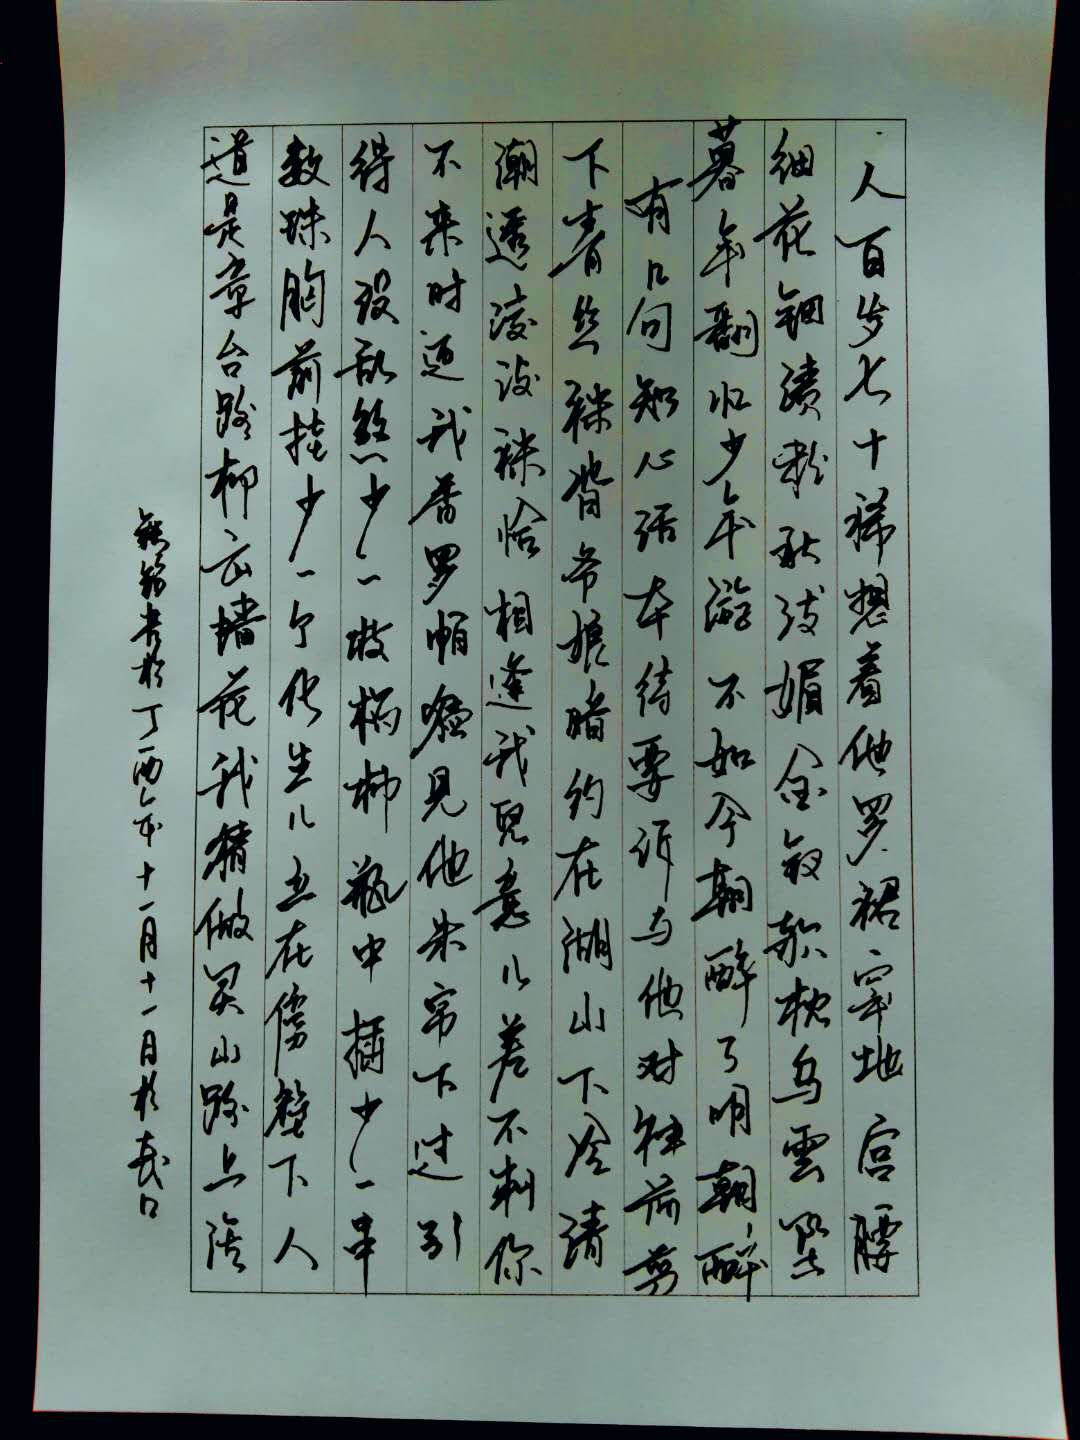 人百岁七十稀想着他罗裙窣地宫腰
细花钿渍粉秋波媚金钗欹枕乌雲坠
暮年翻忆少年游不如今朝醉了明朝醉
有几句知心话本待要诉与他对神前剪
下青丝褙爷娘暗约在湖山下冷清
潮透凌波袜恰相逢我兒意儿差不剌你
不来时还我香罗帕蓦见他朱帘下过引
得人没乱煞少一枝杨柳瓶中插少一串
数珠胸前挂少一个化生儿立在傍壁下人
道是章台路柳云墙花我猜做灵山路上活
书於丁酉年十一月十一日於